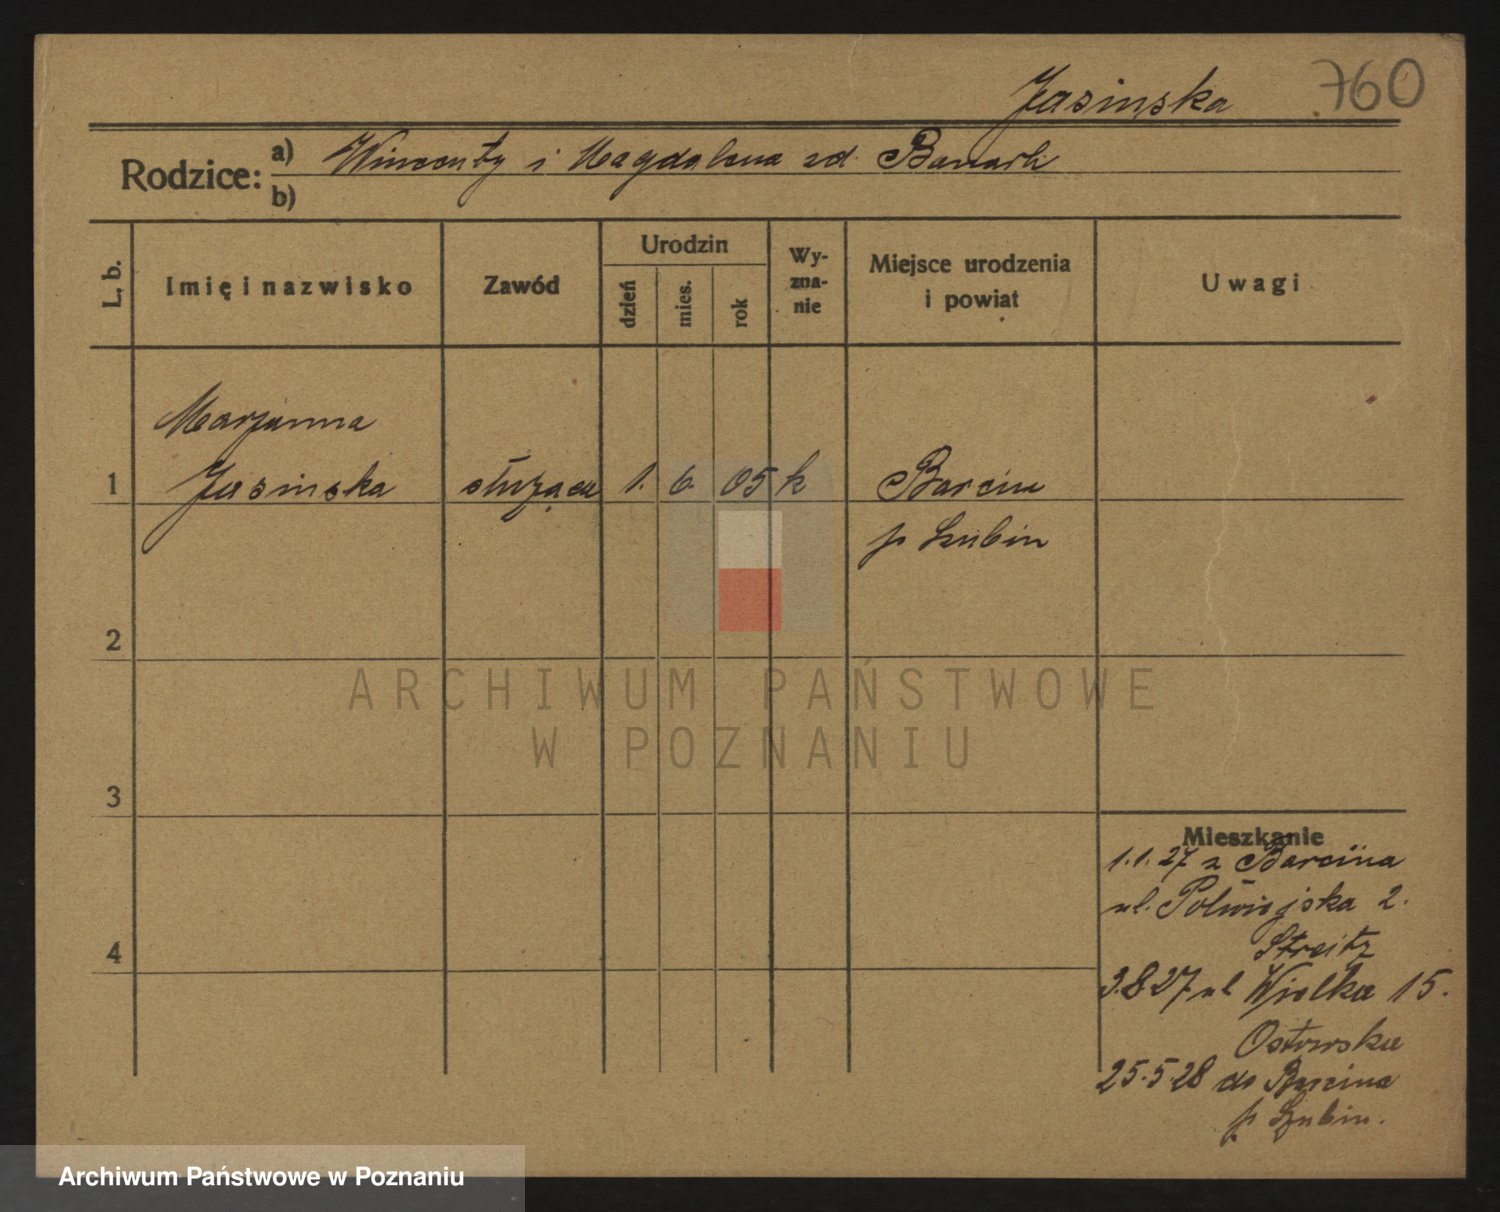 Jasinska 760
Rodzice: a) Wincenty i Magdalena zd. Banach
b)
L. b. Imię i nazwisko Zawód Urodzin dzień mies. rok Wy-zna-nie Miejsce urodzenia i powiat Uwagi
Marjanna
1 Jasinska służąca 1. 6. 05 k Barcin
p Szubin
2
ARCHIWUM PAŃSTWOWE
W POZNANIU
3
Mieszkanie
1.1.27 z Barcina
ul. Półwiejska 2.
Streitz
4
3.8.27 ul Wielka 15.
Ostowska
25.5.28 do Barcina
p Szubin.
Archiwum Państwowe w Poznaniu